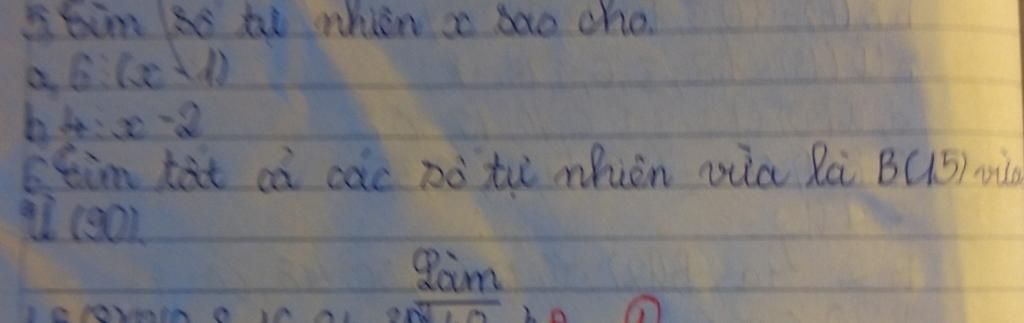 5, Tìm số tự nhiên x sao cho.
a, 6 ⋮ (x - 1)
b, 4 ⋮ x - 2
6, Tìm tất cả các số tự nhiên vừa là B(15) vừa
Ư (90).
Làm